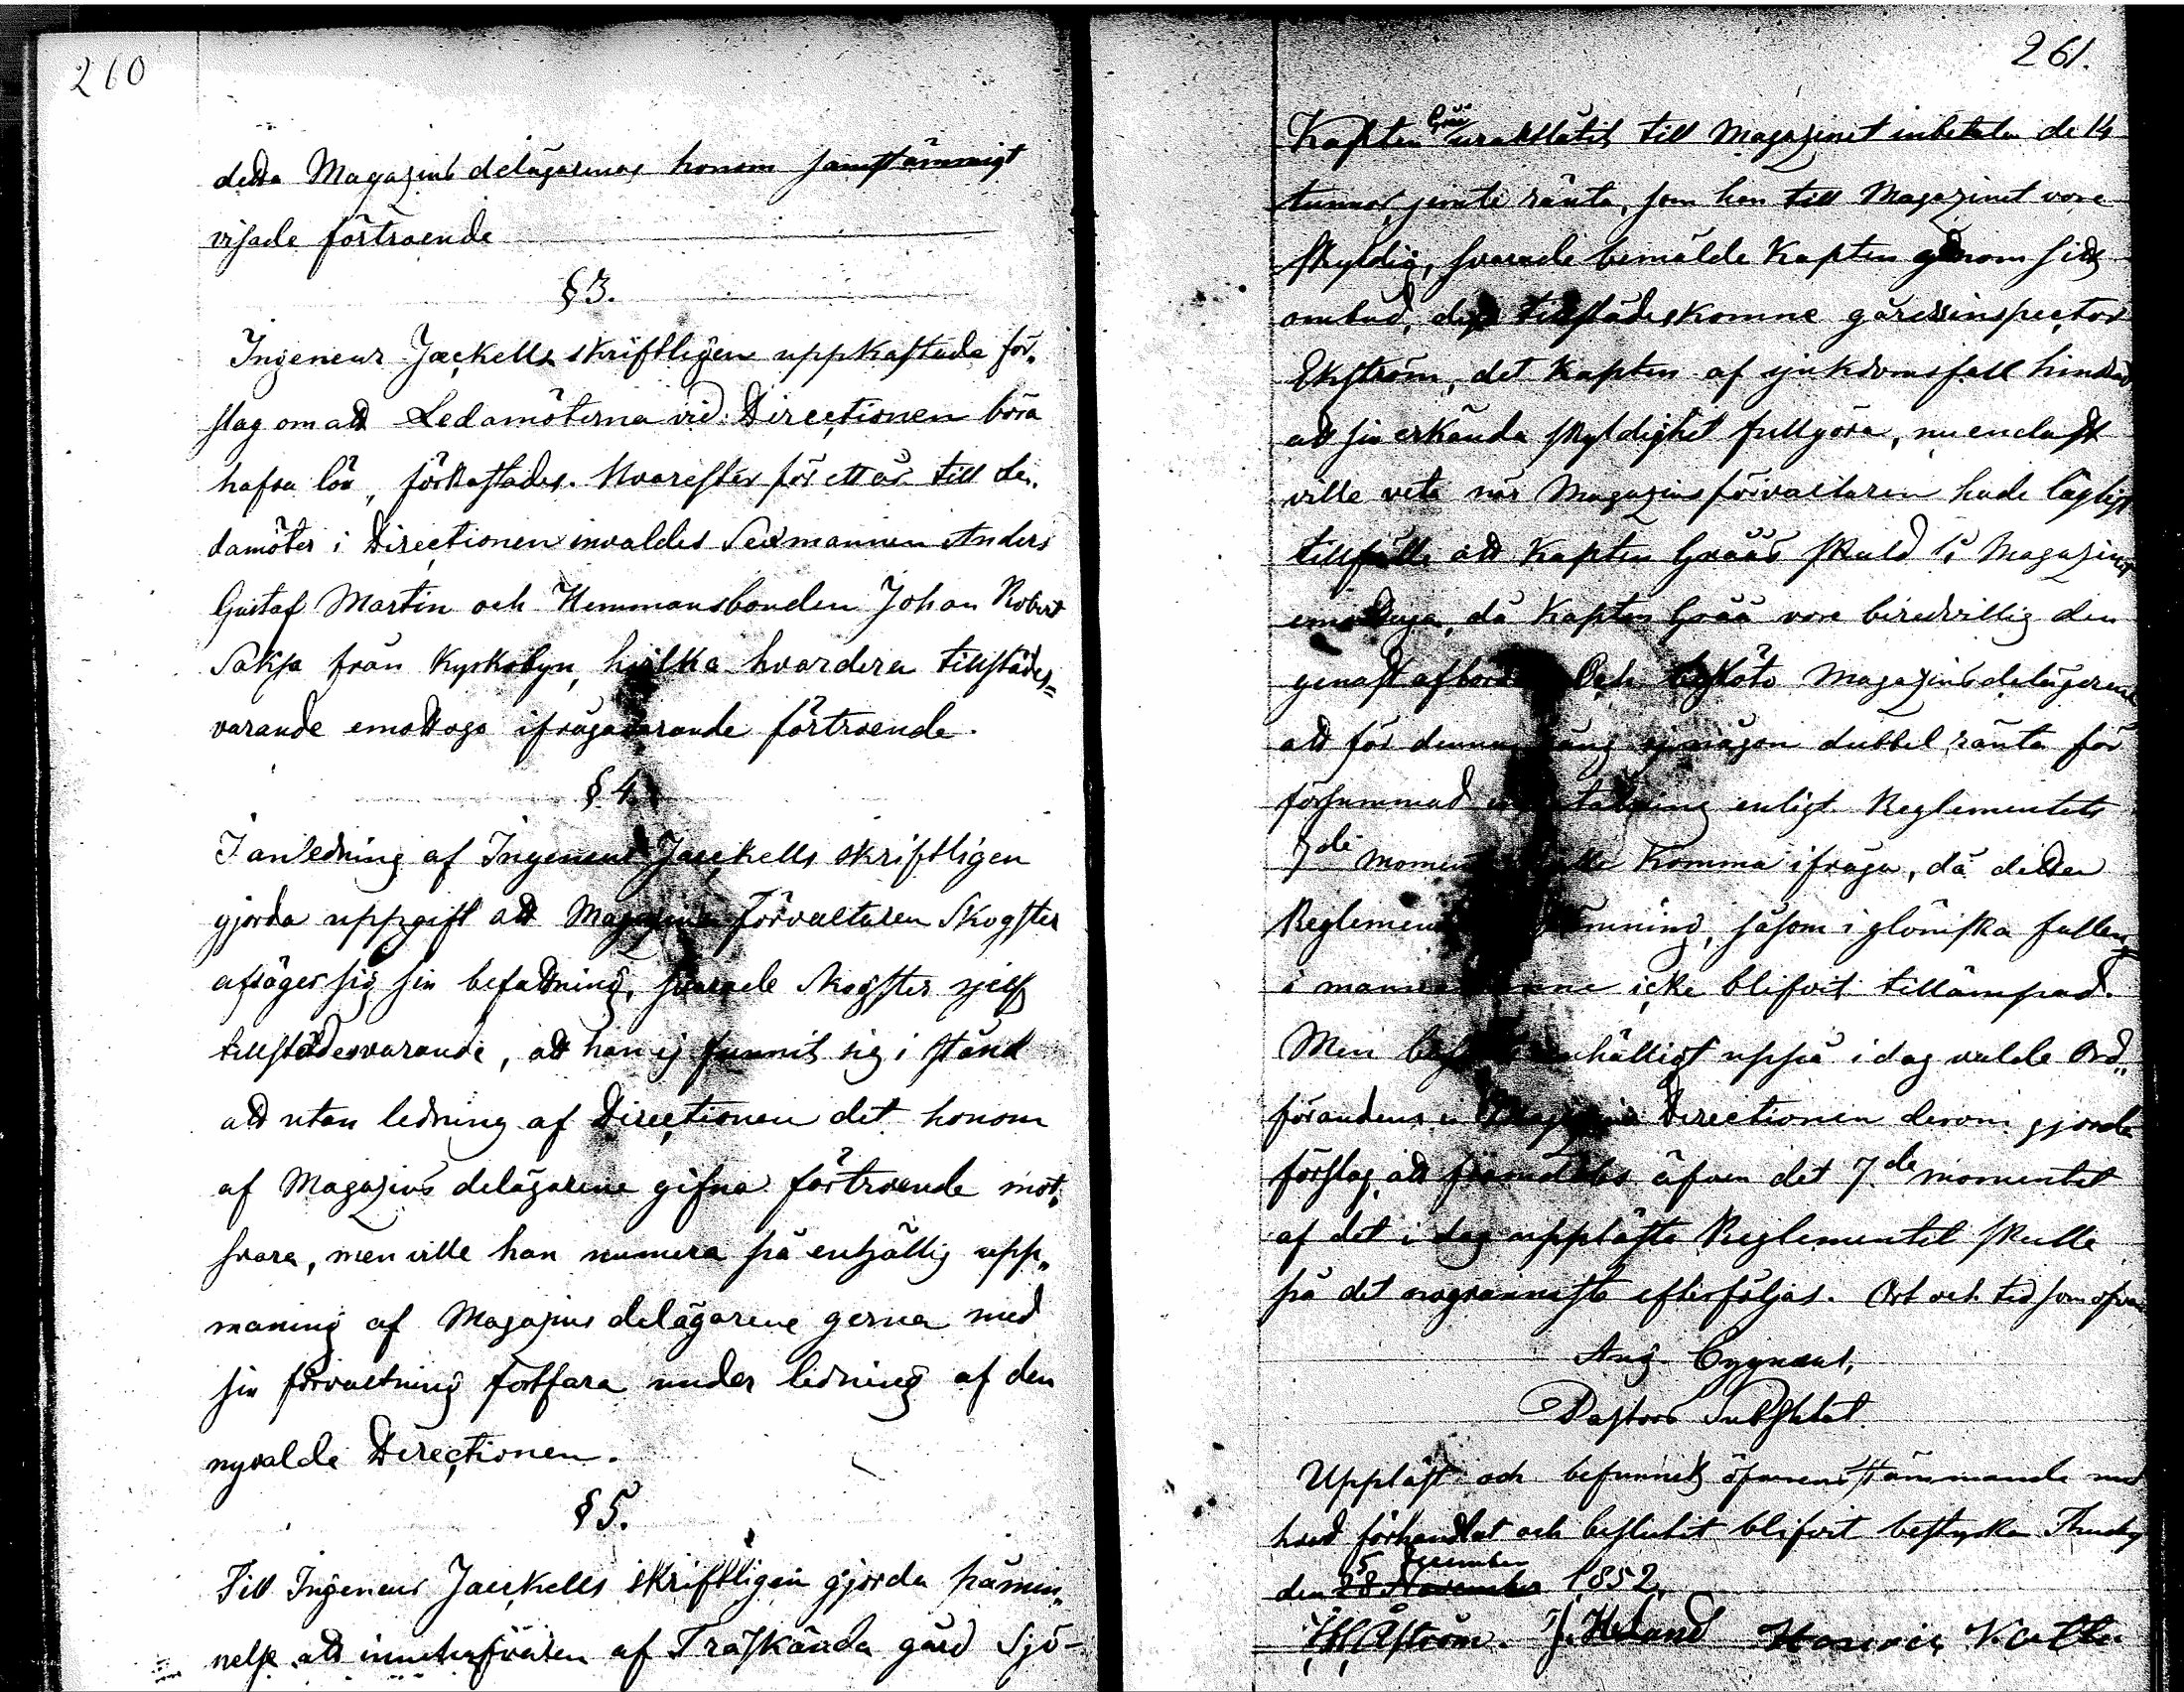 260
detta Magazins delägarenas honom samstämmigt
visade förtroende
§ 3.
Ingeneur Jaeckells skriftligen uppkastade för„
slag om att Ledamöterna vid Directionen böra
hafva lön, förkastades. Hvarefter för ett år till Le„
damöter i Directionen invaldes Sexmannen Anders
Gustaf Martin och Hemmansbonden Johan Robert
Saksa från Kyrkobyn, hvilka hvardera tillstädes=
varande emottogo ifrågavarande förtroende.
§ 4.
I anledning af Ingeneur Jaeckells skriftligen
gjorda uppgift att Magazins Förvaltaren Skogster
afsäger sig sin befattning, svarade Skogster sjelf
tillstädesvarande, att han ej funnit sig i stånd
att utan ledning af Directionen det honom
af Magazins delägarene gifna förtroende mot„
svara, men ville han numera på enhällig upp„
maning af Magazins delägarene gerna med
sin förvaltning fortfara under ledning af den
nyvalde Directionen.
§ 5.
Till Ingeneur Jaeckells skriftligen gjorda påmin„
nelse att innehafvaren af Träskända gård Sjö-
261.
Kapten Grää uraktlåtit till Magazinet inbetala de 14
tunnor jemte ränta, som han till Magazinet vore
skyldig, svarade bemälde Kapten genom sitt
ombud, den tillstädeskomne gårdsinspector
Ekström, det Kapten af sjukdomsfall hindrad
att sin erkända skyldighet fullgöra, nu endast
ville veta när Magazins förvaltaren hade lägligt
tillfälle att Kapten Grääs skuld i Magazinet
emottaga, då Kapten Grää vore beredvillig den
genast afbörda Och beslöto Magazins delägarene
att för denna gång ej någon dubbel ränta för
försummad inbetalning enligt Reglementets
7de moment skulle komma ifråga, då detta
Reglementets bestämning, såsom i glömska fallen
i mannaminne icke blifvit tillämpad.
Men beslöts enhälligt uppå i dag valde Ord„
förandens i Magazins Directionen derom gjorda
förslag att framdeles äfven det 7de momentet
af det i dag upplästa Reglementet skulle
på det nogrannaste efterföljas. Ort och tid som ofvan
Aug. Cygnæus,
Pastors Substitut.
Uppläst och befunnet öfverensstämmande med
hvad förhandlat och beslutit blifvit bestyrka Thusby
5 December
den 28 November 1852.
Åström. J. Heland Kalle